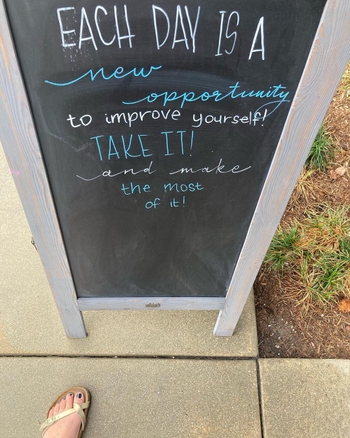 EACH DAY IS A
new
opportunity
to improve yourself!
TAKE IT!
and make
the most
of it!